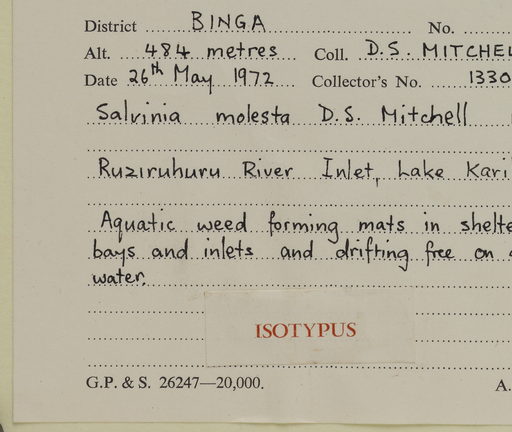 District BINGA No.
Alt. 484 metres Coll. D.S. MITCHEL
Date 26th May 1972 Collector's No. 1330
Salvinia molesta D.S. Mitchell
Ruziruhuru River Inlet, Lake Kari
Aquatic weed forming mats in shelte
bays and inlets and drifting free on
water.
ISOTYPUS
G.P. & S. 26247—20,000. A.